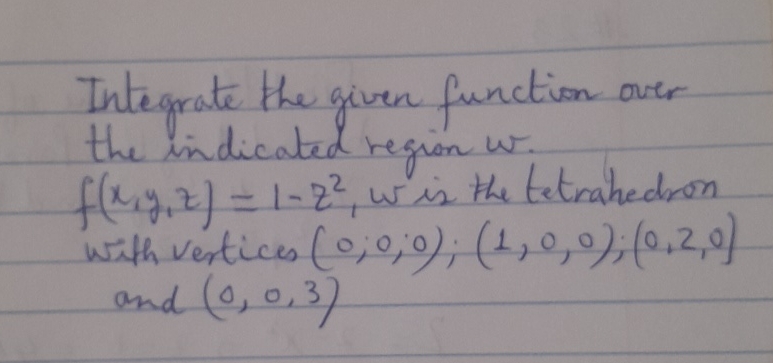 Integrate the given function over
the indicated region w.
f(x,y,z) = 1-z², w is the tetrahedron
with vertices (0;0;0); (1,0,0);(0,2,0)
and (0,0,3)